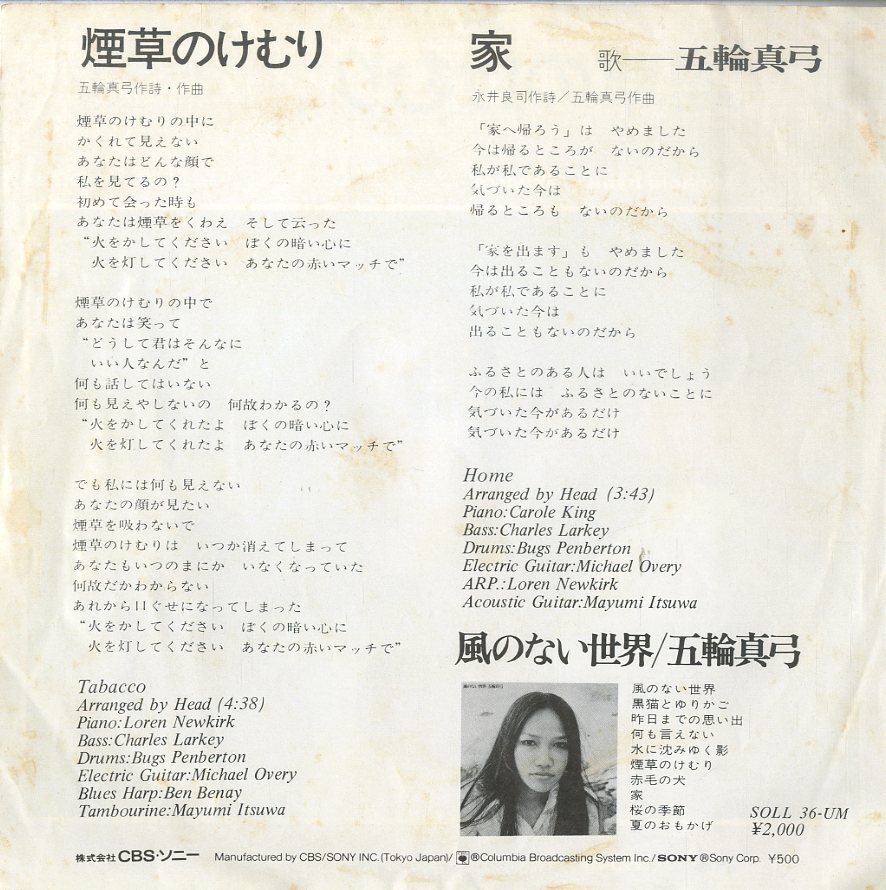 煙草のけむり
五輪真弓作詩・作曲
煙草のけむりの中に
かくれて見えない
あなたはどんな顔で
私を見てるの?
初めて会った時も
あなたは煙草をくわえ そして云った
“火をかしてください ぼくの暗い心に
火を灯してください あなたの赤いマッチで”
煙草のけむりの中で
あなたは笑って
“どうして君はそんなに
いい人なんだ”と
何も話してはいない
何も見えやしないの 何故わかるの?
“火をかしてくれたよ ぼくの暗い心に
火を灯してくれたよ あなたの赤いマッチで”
でも私には何も見えない
あなたの顔が見たい
煙草を吸わないで
煙草のけむりは いつか消えてしまって
あなたもいつのまにか いなくなっていた
何故だかわからない
あれから口ぐせになってしまった
“火をかしてください ぼくの暗い心に
火を灯してください あなたの赤いマッチで”
Tabacco
Arranged by Head (4:38)
Piano:Loren Newkirk
Bass:Charles Larkey
Drums:Bugs Penberton
Electric Guitar:Michael Overy
Blues Harp:Ben Benay
Tambourine:Mayumi Itsuwa
家 歌──五輪真弓
永井良司作詩/五輪真弓作曲
「家へ帰ろう」は やめました
今は帰るところが ないのだから
私が私であることに
気づいた今は
帰るところも ないのだから
「家を出ます」も やめました
今は出ることもないのだから
私が私であることに
気づいた今は
出ることもないのだから
ふるさとのある人は いいでしょう
今の私には ふるさとのないことに
気づいた今があるだけ
気づいた今があるだけ
Home
Arranged by Head (3:43)
Piano:Carole King
Bass:Charles Larkey
Drums:Bugs Penberton
Electric Guitar:Michael Overy
ARP.:Loren Newkirk
Acoustic Guitar:Mayumi Itsuwa
風のない世界/五輪真弓
風のない世界 五輪真弓
風のない世界
黒猫とゆりかご
昨日までの思い出
何も言えない
水に沈みゆく影
煙草のけむり
赤毛の犬
家
桜の季節
夏のおもかげ
SOLL 36-UM
¥2,000
株式会社CBS・ソニー Manufactured by CBS/SONY INC.(Tokyo Japan)/ ®Columbia Broadcasting System Inc./SONY ®Sony Corp. ¥500